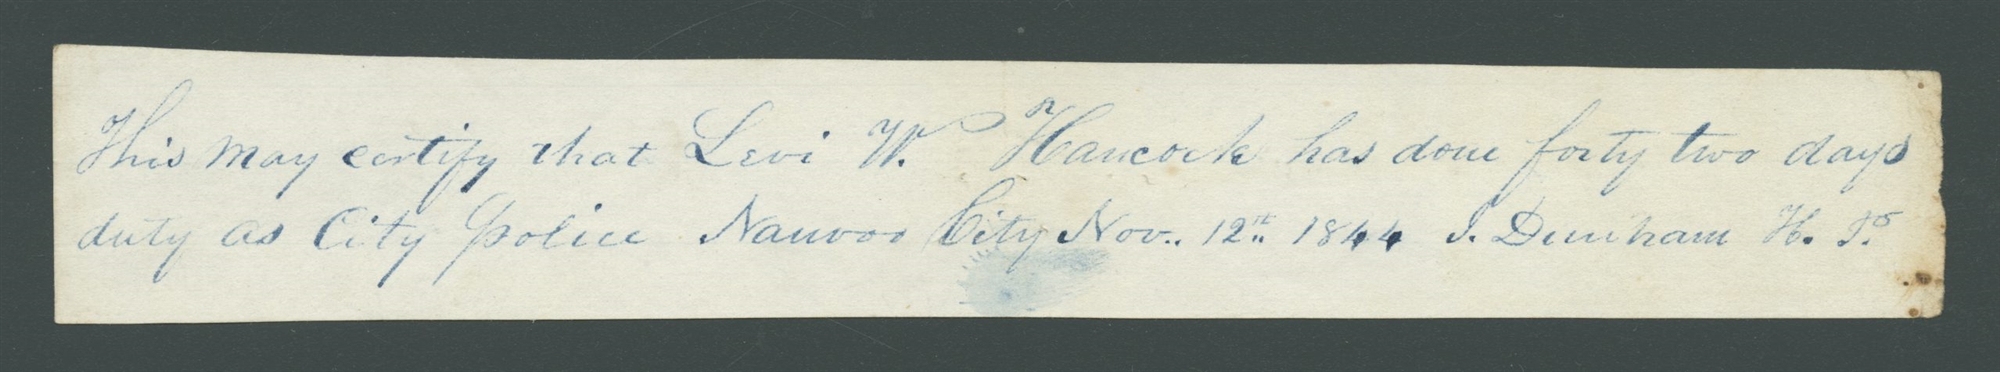 This may certify that Levi W. Hancock has done forty two days
duty as City police Nauvoo City Nov. 12th 1844 J. Dunham H. P.